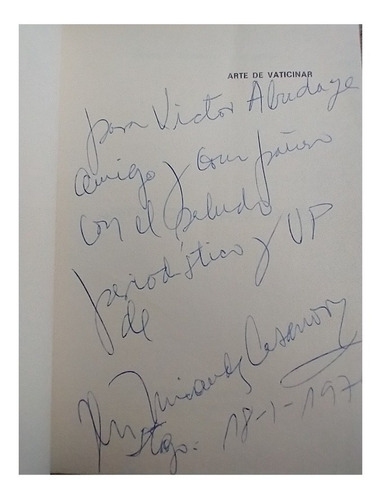 ARTE DE VATICINAR
para Victor Abudaye
amigo y compañero
con el saludo
periodístico y UP
de
Miranda Casanova
Stgo. 18-1-197